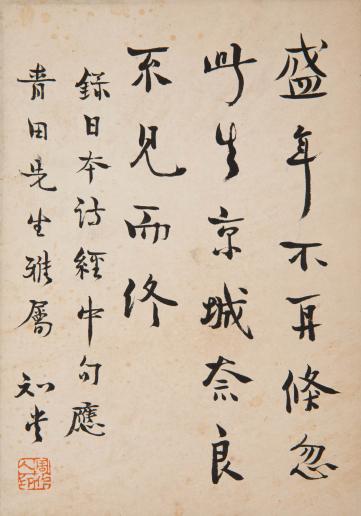 盛年不再倏忽
此生京城奈良
不見而終
錄日本詩經中句應
青田先生雅屬 知堂
周作人印